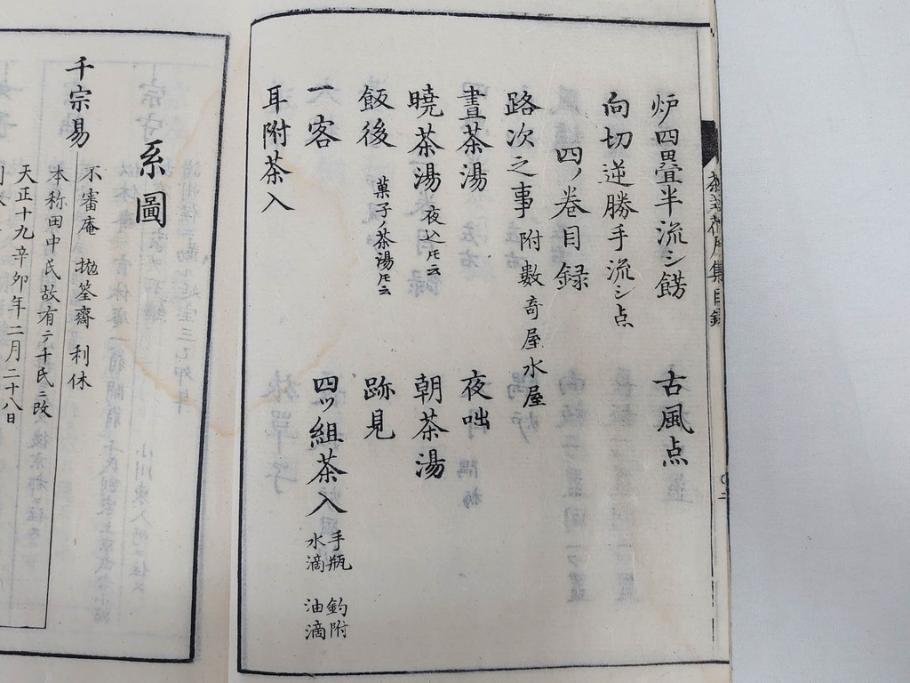 炉四畳半流シ餝　古風点
向切逆勝手流シ点
四ノ巻目録
路次之事 附數奇屋水屋
晝茶湯　夜咄
曉茶湯 夜込ﾄモ云　朝茶湯
飯後 菓子ノ茶湯ﾄモ云　跡見
一客　四ツ組茶入 手瓶 釣附 水滴 油滴
耳附茶入
系圖
千宗易 不審庵 抛筌齋 利休
本称田中氏故有テ千氏ニ改
天正十九辛卯年二月二十八日